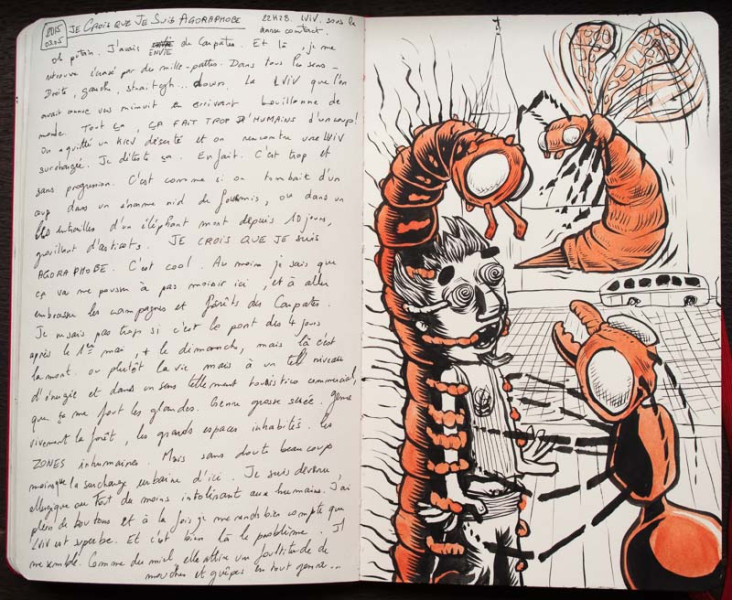 2015 JE CROIS QUE JE SUIS AGORAPHOBE 22H28. LViV, sous la
même contact.
oh putain. J'avais ENVIE de Carpates. Et là, je me
retrouve coincé par des mille-pattes. Dans tous les sens -
Droite, gauche, straitgh... down. La LViV que l'on
avait connue vers minuit bouillonne de
monde. Tout ça, ÇA FAIT TROP D'HUMAINS d'un coup!
On a quitté un KIEV déserté et on rencontre une LViV
surchargée. Je déteste ça. En fait. C'est trop et
sans progression. C'est comme si on tombait d'un
coup dans un énorme nid de fourmis, ou dans
les entrailles d'un éléphant mort depuis 10 jours,
grouillant d'asticots. JE CROIS QUE JE SUIS
AGORAPHOBE. C'est cool. Au moins je sais que
ça va me pousser à pas moisir ici, et à aller
embrasser les campagnes et forêts des Carpates.
Je ne sais pas trop si c'est le pont des 4 jours
après le 1er mai, + le dimanche, mais là c'est
la mort. ou plutôt la vie mais à un tel niveau
et dans un sens tellement touristico commercial,
que ça me fout les glandes. Genre grosse suée. Genre
vivement la forêt, les grands espaces inhabités. Les
ZONES inhumaines. Mais sans doute beaucoup
moins que la surcharge urbaine d'ici. Je suis devenu
allergique ou tout du moins intolérant aux humains. J'ai
plein de boutons et à la fois je me rends bien compte que
LViV est superbe. Et c'est bien là le problème. Il
me semble. Comme du miel elle attire une foultitude de
mouches et guêpes en tout genre...